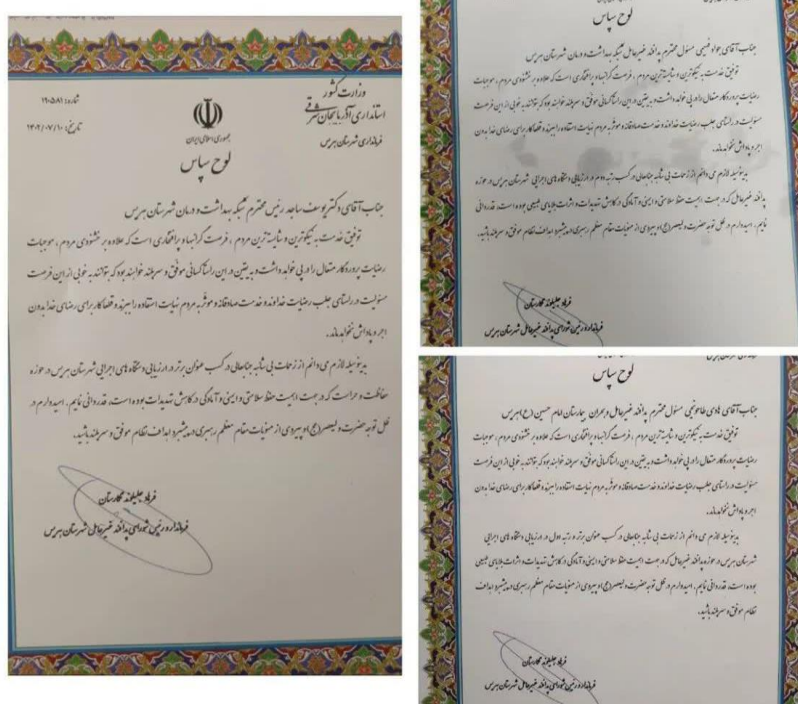 وزارت کشور
استانداری آذربایجان شرقی
فرمانداری شهرستان هریس
شماره: ۱۹۰۵۸۱
تاریخ: ۱۴۰۲/۰۷/۱۰
جمهوری اسلامی ایران
لوح سپاس
جناب آقای دکتر یوسف ساجد رئیس محترم شبکه بهداشت و درمان شهرستان هریس
توفیق خدمت به نیکوترین و شایسته ترین مردم ، فرصت گرانبها و پرافتخاری است که علاوه بر خشنودی مردم ، موجبات
رضایت پروردگار متعال را در پی خواهد داشت و به یقین در این راستا کسانی موفق و سربلند خواهند بود که بتوانند به خوبی از این فرصت
مسئولیت در راستای جلب رضایت خداوند و خدمت صادقانه و موثر به مردم نهایت استفاده را ببرند و قطعا کار برای رضای خدا بدون
اجر و پاداش نخواهد ماند.
بدینوسیله لازم می دانم از زحمات بی شائبه جنابعالی در کسب عنوان برتر در ارزیابی دستگاه های اجرایی شهرستان هریس در حوزه
حفاظت و حراست که در جهت اهمیت حفظ سلامتی و ایمنی و آمادگی در کاهش تهدیدات بوده است، قدردانی نمایم . امیدوارم در
ظل توجه حضرت ولیعصر(عج) و پیروی از منویات مقام معظم رهبری در پیشبرد اهداف نظام موفق و سربلند باشید.
فرهاد جلیلوند نگارستان
فرماندار و رئیس شورای پدافند غیرعامل شهرستان هریس
لوح سپاس
جناب آقای جواد فهیمی مسئول محترم پدافند غیرعامل شبکه بهداشت و درمان شهرستان هریس
توفیق خدمت به نیکوترین و شایسته ترین مردم ، فرصت گرانبها و پرافتخاری است که علاوه بر خشنودی مردم ، موجبات
رضایت پروردگار متعال را در پی خواهد داشت و به یقین در این راستا کسانی موفق و سربلند خواهند بود که بتوانند به خوبی از این فرصت
مسئولیت در راستای جلب رضایت خداوند و خدمت صادقانه و موثر به مردم نهایت استفاده را ببرند و قطعا کار برای رضای خدا بدون
اجر و پاداش نخواهد ماند.
بدینوسیله لازم می دانم از زحمات بی شائبه جنابعالی در کسب رتبه دوم در ارزیابی دستگاه های اجرایی شهرستان هریس در حوزه
پدافند غیرعامل که در جهت اهمیت حفظ سلامتی و ایمنی و آمادگی در کاهش تهدیدات و اثرات بلایای طبیعی بوده است، قدردانی
نمایم . امیدوارم در ظل توجه حضرت ولیعصر(عج) و پیروی از منویات مقام معظم رهبری در پیشبرد اهداف نظام موفق و سربلند باشید.
فرهاد جلیلوند نگارستان
فرماندار و رئیس شورای پدافند غیرعامل شهرستان هریس
لوح سپاس
جناب آقای هادی مسئول محترم پدافند غیرعامل و بحران بیمارستان امام حسین (ع) هریس
توفیق خدمت به نیکوترین و شایسته ترین مردم ، فرصت گرانبها و پرافتخاری است که علاوه بر خشنودی مردم ، موجبات
رضایت پروردگار متعال را در پی خواهد داشت و به یقین در این راستا کسانی موفق و سربلند خواهند بود که بتوانند به خوبی از این فرصت
مسئولیت در راستای جلب رضایت خداوند و خدمت صادقانه و موثر به مردم نهایت استفاده را ببرند و قطعا کار برای رضای خدا بدون
اجر و پاداش نخواهد ماند.
بدینوسیله لازم می دانم از زحمات بی شائبه جنابعالی در کسب عنوان برتر و رتبه اول در ارزیابی دستگاه های اجرایی
شهرستان هریس در حوزه پدافند غیرعامل که در جهت اهمیت حفظ سلامتی و ایمنی و آمادگی در کاهش تهدیدات و اثرات بلایای طبیعی
بوده است، قدردانی نمایم . امیدوارم در ظل توجه حضرت ولیعصر(عج) و پیروی از منویات مقام معظم رهبری در پیشبرد اهداف
نظام موفق و سربلند باشید.
فرهاد جلیلوند نگارستان
فرماندار و رئیس شورای پدافند غیرعامل شهرستان هریس